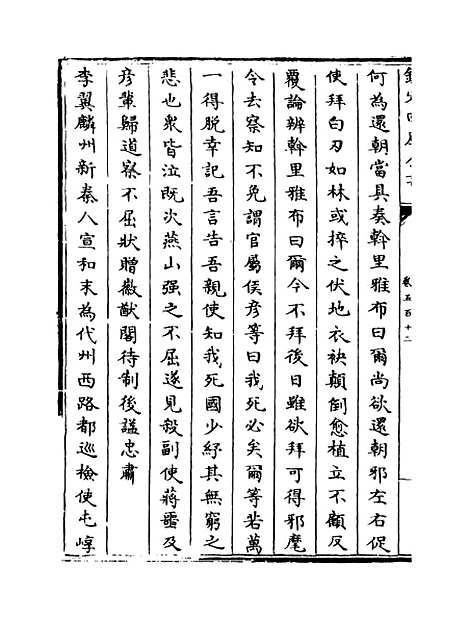 欽定四庫全書
卷五百十二
何為還朝當具奏斡里雅布曰爾尚欲還朝邪左右促
使拜白刃如林或捽之伏地衣袂顛倒愈植立不顧反
覆論辨斡里雅布曰爾今不拜後日雖欲拜可得邪麾
令去察知不免謂官屬侯彦等曰我死必矣爾等若萬
一得脱幸記吾言告吾親使知我死國少紓其無窮之
悲也衆皆泣既次燕山强之不屈遂見殺副使蔣噩及
彦輩歸道察不屈狀贈徽猷閣待制後諡忠肅
李翼麟州新秦人宣和末為代州西路都巡檢使屯崞